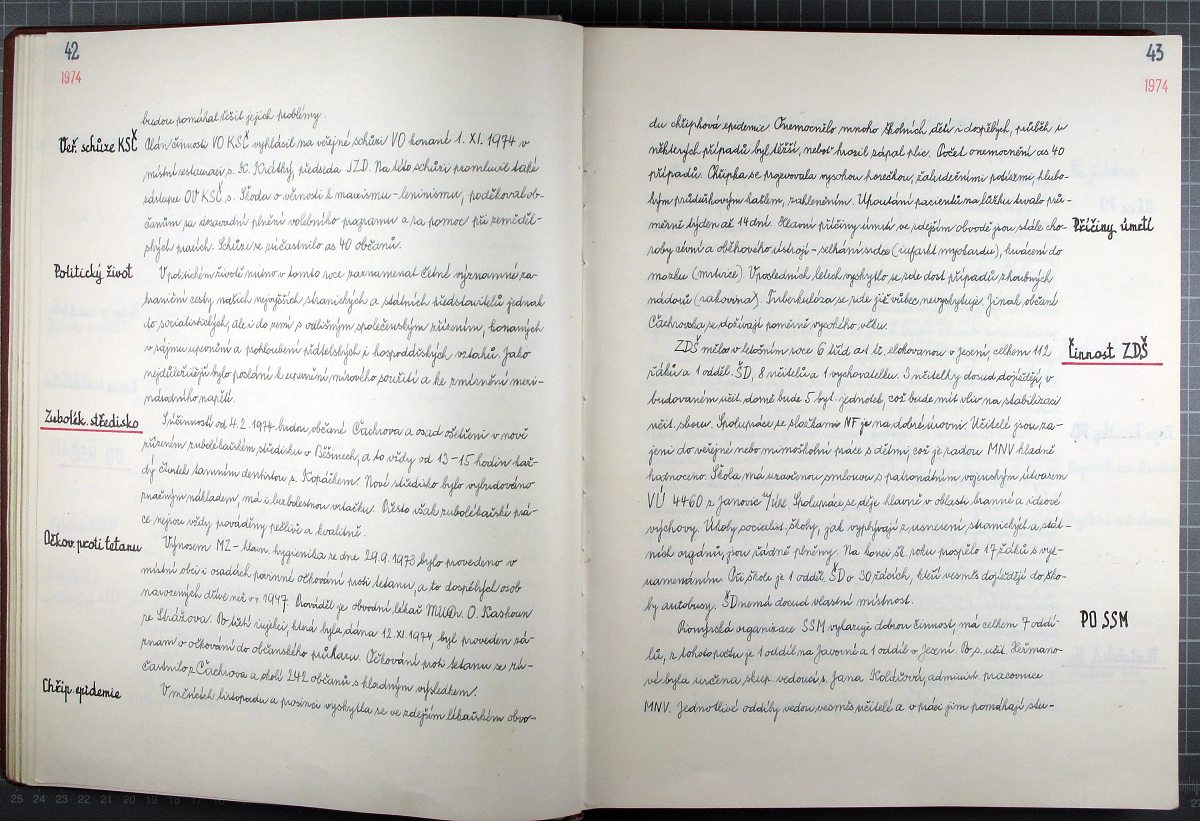 42
1974
budou pomáhat řešit jejich problémy.
Veř. schůze KSČ
Plán činnosti VO KSČ vyhlásil na veřejné schůzi VO konané 1. XI. 1974 v
místní restauraci s. K. Krátký, předseda JZD. Na této schůzi promluvil také
zástupce OV KSČ s. Škoda o věrnosti k marxismu-leninismu, poděkoval ob-
čanům za dosavadní plnění volebního programu a za pomoc při zeměděl-
ských pracích. Schůze se zúčastnilo as 40 občanů.
Politický život
V politickém životě nutno v tomto roce zaznamenat četné významné za-
hraniční cesty našich nejvyšších stranických a státních představitelů jednak
do socialistických, ale i do zemí s odlišným společenským zřízením, konaných
v zájmu upevnění a prohloubení přátelských i hospodářských vztahů. Jako
nejdůležitější bylo poslání k upevnění mírového soužití a ke zmírnění mezi-
národního napětí.
Zubolék. středisko
S účinností od 4. 2. 1974 budou občané Čachrova a osad ošetřeni v nově
zřízeném zubolékařském středisku v Běšinech, a to vždy od 13-15 hodin kaž-
dý čtvrtek tamním dentistou s. Kopáčkem. Nové středisko bylo vybudováno
značným nákladem, má i bezbolestnou vrtačku. Přesto však zubolékařské prá-
ce nejsou vždy prováděny pečlivě a kvalitně.
Očkov. proti tetanu
Výnosem MZ - hlavn. hygienika ze dne 29. 9. 1973 bylo provedeno v
místní obci i osadách povinné očkování proti tetanu, a to dospělých osob
narozených dříve než v r. 1947. Prováděl je obvodní lékař MUDr. O. Kaskoun
ze Strážova. Po třetí injekci, která byla dána 12. XI. 1974, byl proveden zá-
znam o očkování do občanského průkazu. Očkování proti tetanu se zú-
častnilo z Čachrova a okolí 242 občanů s kladným výsledkem.
Chřip. epidemie
V měsících listopadu a prosinci vyskytla se ve zdejším lékařském obvo-
43
1974
du chřipková epidemie. Onemocnělo mnoho školních dětí i dospělých, průběh u
některých případů byl těžší, neboť hrozil zápal plic. Počet onemocnění as 40
případů. Chřipka se projevovala vysokou horečkou, žaludečními potížemi, hlubo-
kým průduškovým katlem, zahleněním. Upoutání pacientů na lůžku trvalo prů-
měrně týden až 14 dní. Hlavní příčiny úmrtí ve zdejším obvodě jsou stále cho-
Příčiny úmrtí
roby cévní a oběhového ústrojí - selhání srdce (infarkt myokardu), krvácení do
mozku (mrtvice). V posledních letech vyskytlo se zde dost případů zhoubných
nádorů (rakovina). Tuberkulóza se zde již vůbec nevyskytuje. Jinak občané
Čachrovska se dožívají poměrně vysokého věku.
Činnost ZDŠ
ZDŠ měla v letošním roce 6 tříd a 1 tř. elokovanou v Jesení, celkem 112
žáků a 1 odděl. ŠD, 8 učitelů a 1 vychovatelku. 3 učitelky dosud dojíždějí, v
budovaném učit. domě bude 5 byt. jednotek, což bude mít vliv na stabilizaci
učit. sboru. Spolupráce se složkami NF je na dobré úrovni. Učitelé jsou za-
jeni do veřejné nebo mimoškolní práce s dětmi, což je radou MNV kladně
hodnoceno. Škola má uzavřenou smlouvu s patronátním vojenským útvarem
VÚ 4460 z Janovic n/Úhl. Spolupráce se děje hlavně v oblasti branné a ideové
výchovy. Úkoly socialist. školy, jak vyplývají z usnesení stranických a stát-
ních orgánů, jsou řádně plněny. Na konci šk. roku prospělo 17 žáků s vyz-
namenáním. Při škole je 1 odděl. ŠD o 30 žácích, kteří vesměs dojíždějí do ško-
ly autobusy. ŠD nemá dosud vlastní místnost.
PO SSM
Pionýrská organizace SSM vykazuje dobrou činnost, má celkem 7 oddí-
lů, z tohoto počtu je 1 oddíl na Javorné a 1 oddíl v Jesení. Po s. učit. Heřmano-
vé byla určena skup. vedoucí s. Jana Kolářová, administ. pracovnice
MNV. Jednotlivé oddíly vedou vesměs učitelé a v práci jim pomáhají stu-